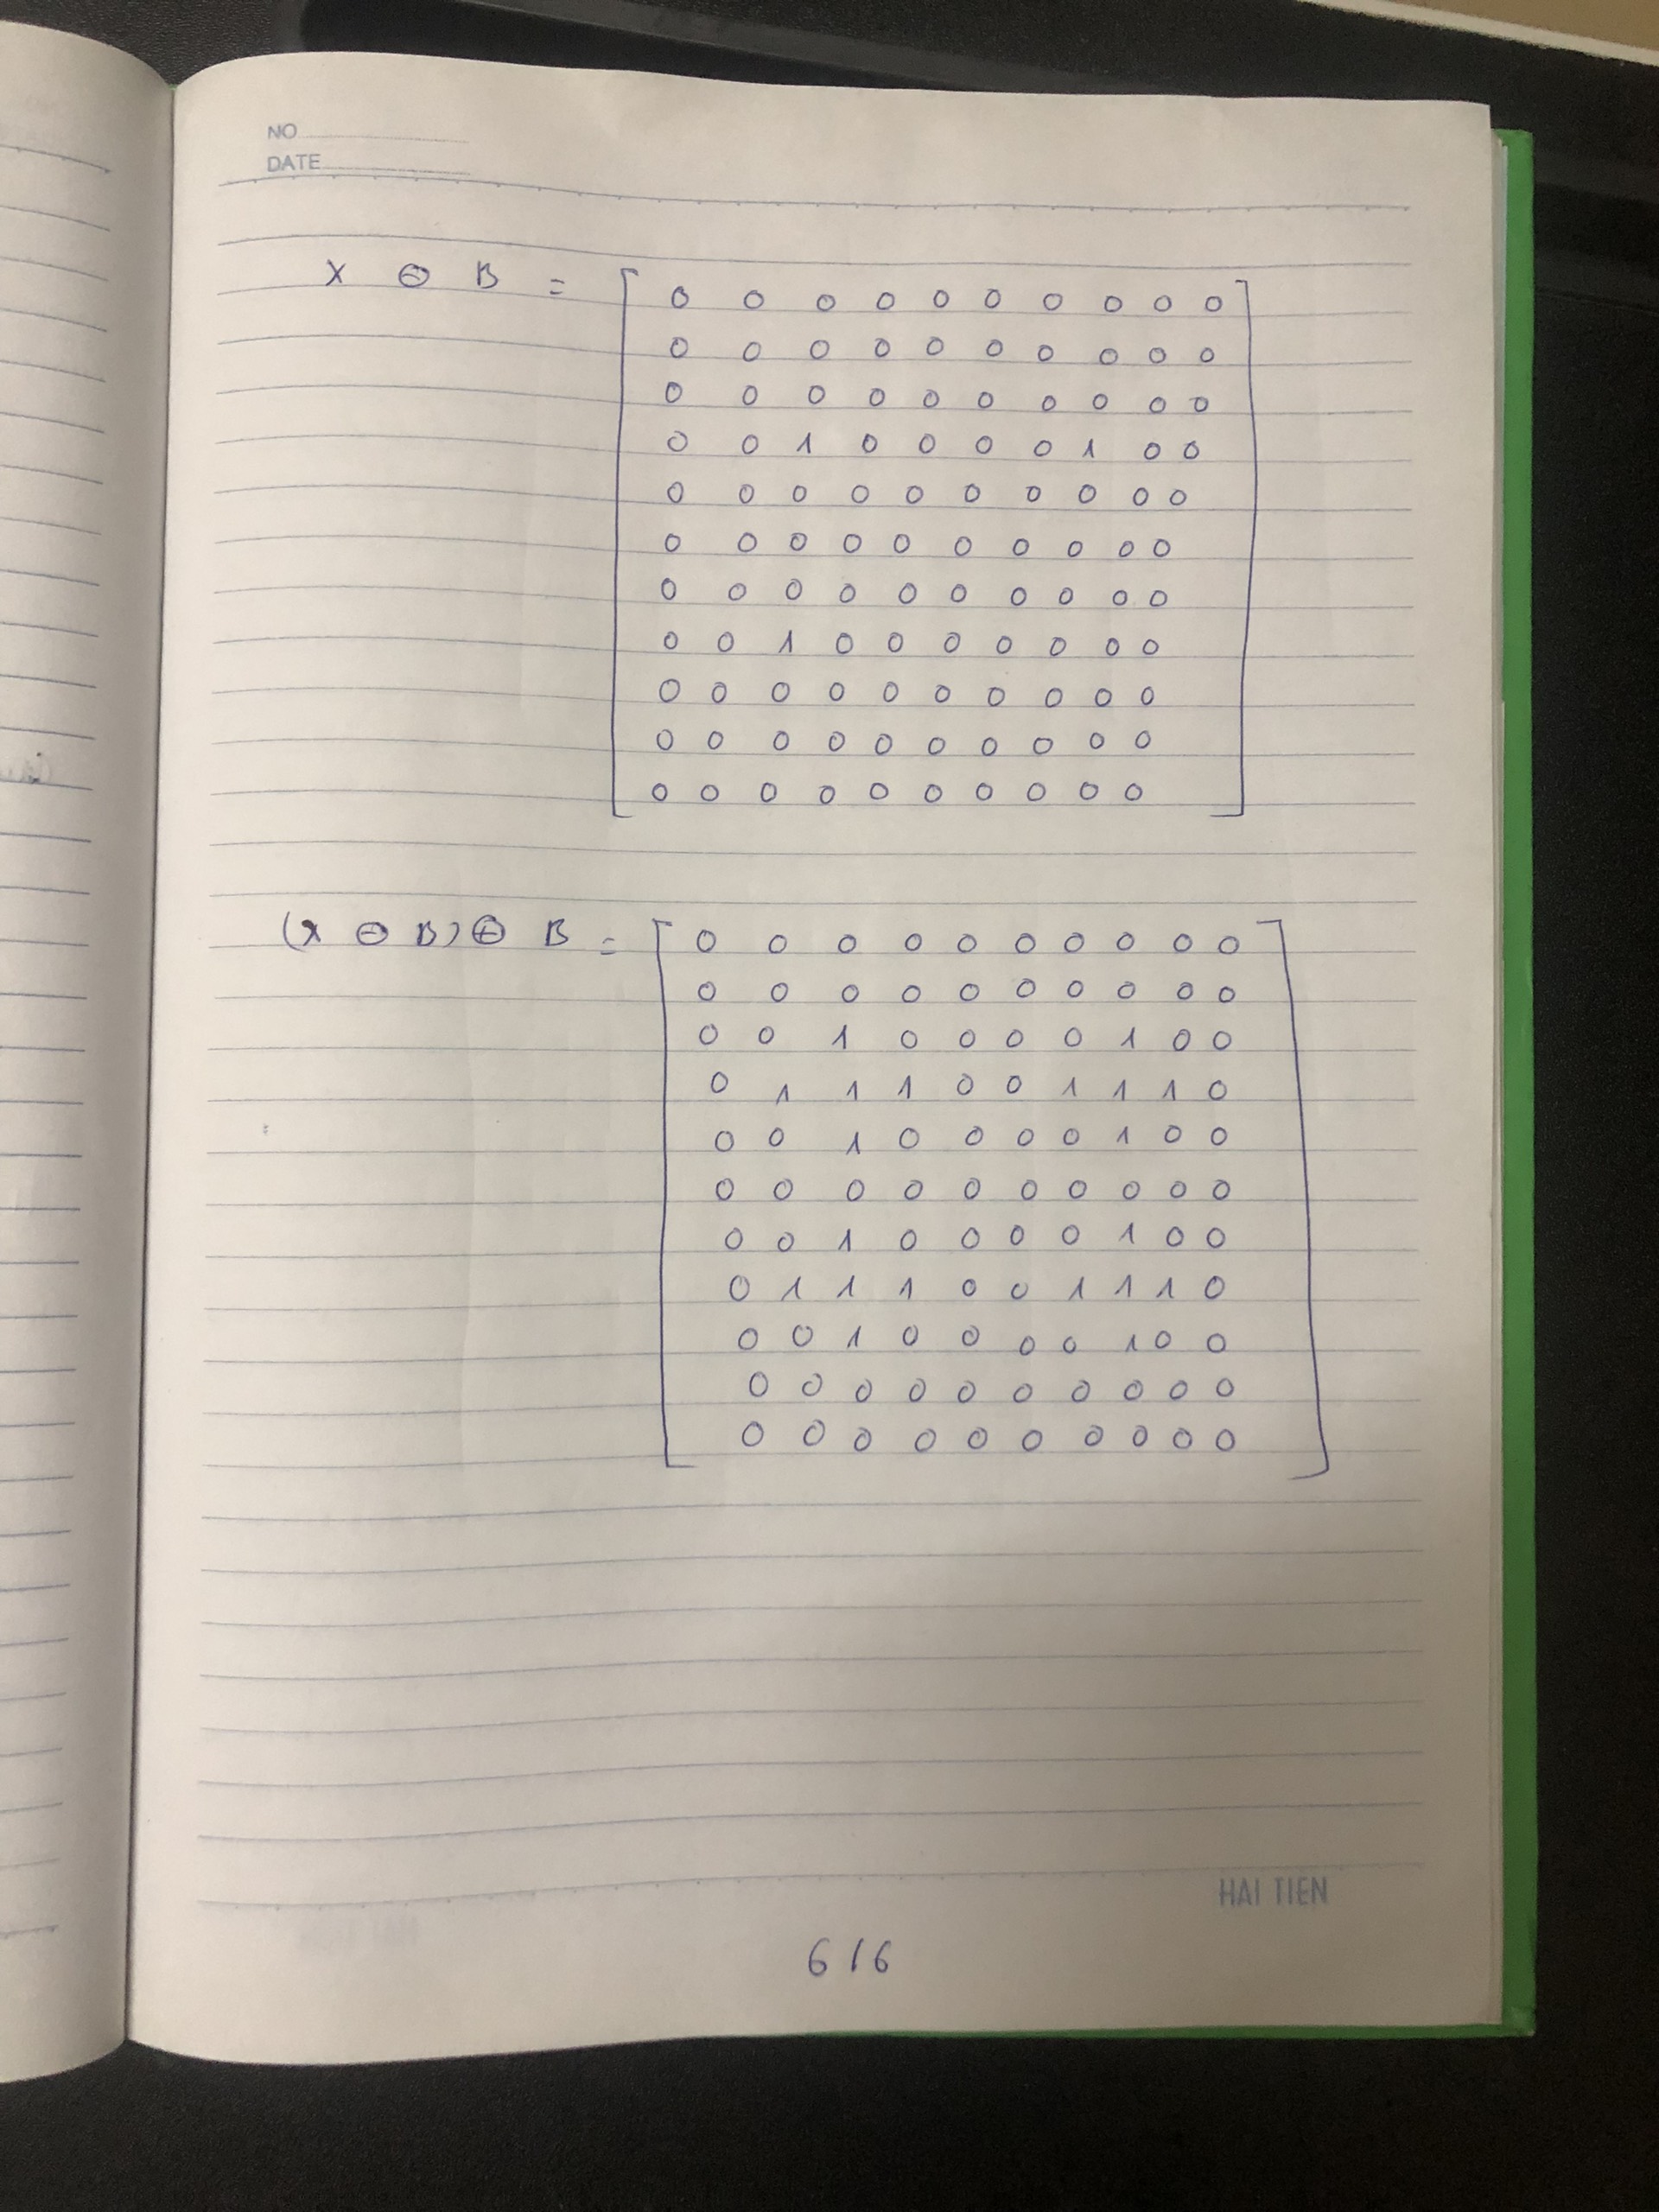 NO
DATE
X ⊖ B = [ 0 0 0 0 0 0 0 0 0 0 ]
0 0 0 0 0 0 0 0 0 0
0 0 0 0 0 0 0 0 0 0
0 0 1 0 0 0 0 1 0 0
0 0 0 0 0 0 0 0 0 0
0 0 0 0 0 0 0 0 0 0
0 0 0 0 0 0 0 0 0 0
0 0 1 0 0 0 0 0 0 0
0 0 0 0 0 0 0 0 0 0
0 0 0 0 0 0 0 0 0 0
0 0 0 0 0 0 0 0 0 0
(X ⊖ B) ⊕ B = [ 0 0 0 0 0 0 0 0 0 0 ]
0 0 0 0 0 0 0 0 0 0
0 0 1 0 0 0 0 1 0 0
0 1 1 1 0 0 1 1 1 0
0 0 1 0 0 0 0 1 0 0
0 0 0 0 0 0 0 0 0 0
0 0 1 0 0 0 0 1 0 0
0 1 1 1 0 0 1 1 1 0
0 0 1 0 0 0 0 1 0 0
0 0 0 0 0 0 0 0 0 0
0 0 0 0 0 0 0 0 0 0
HAI TIEN
6/6